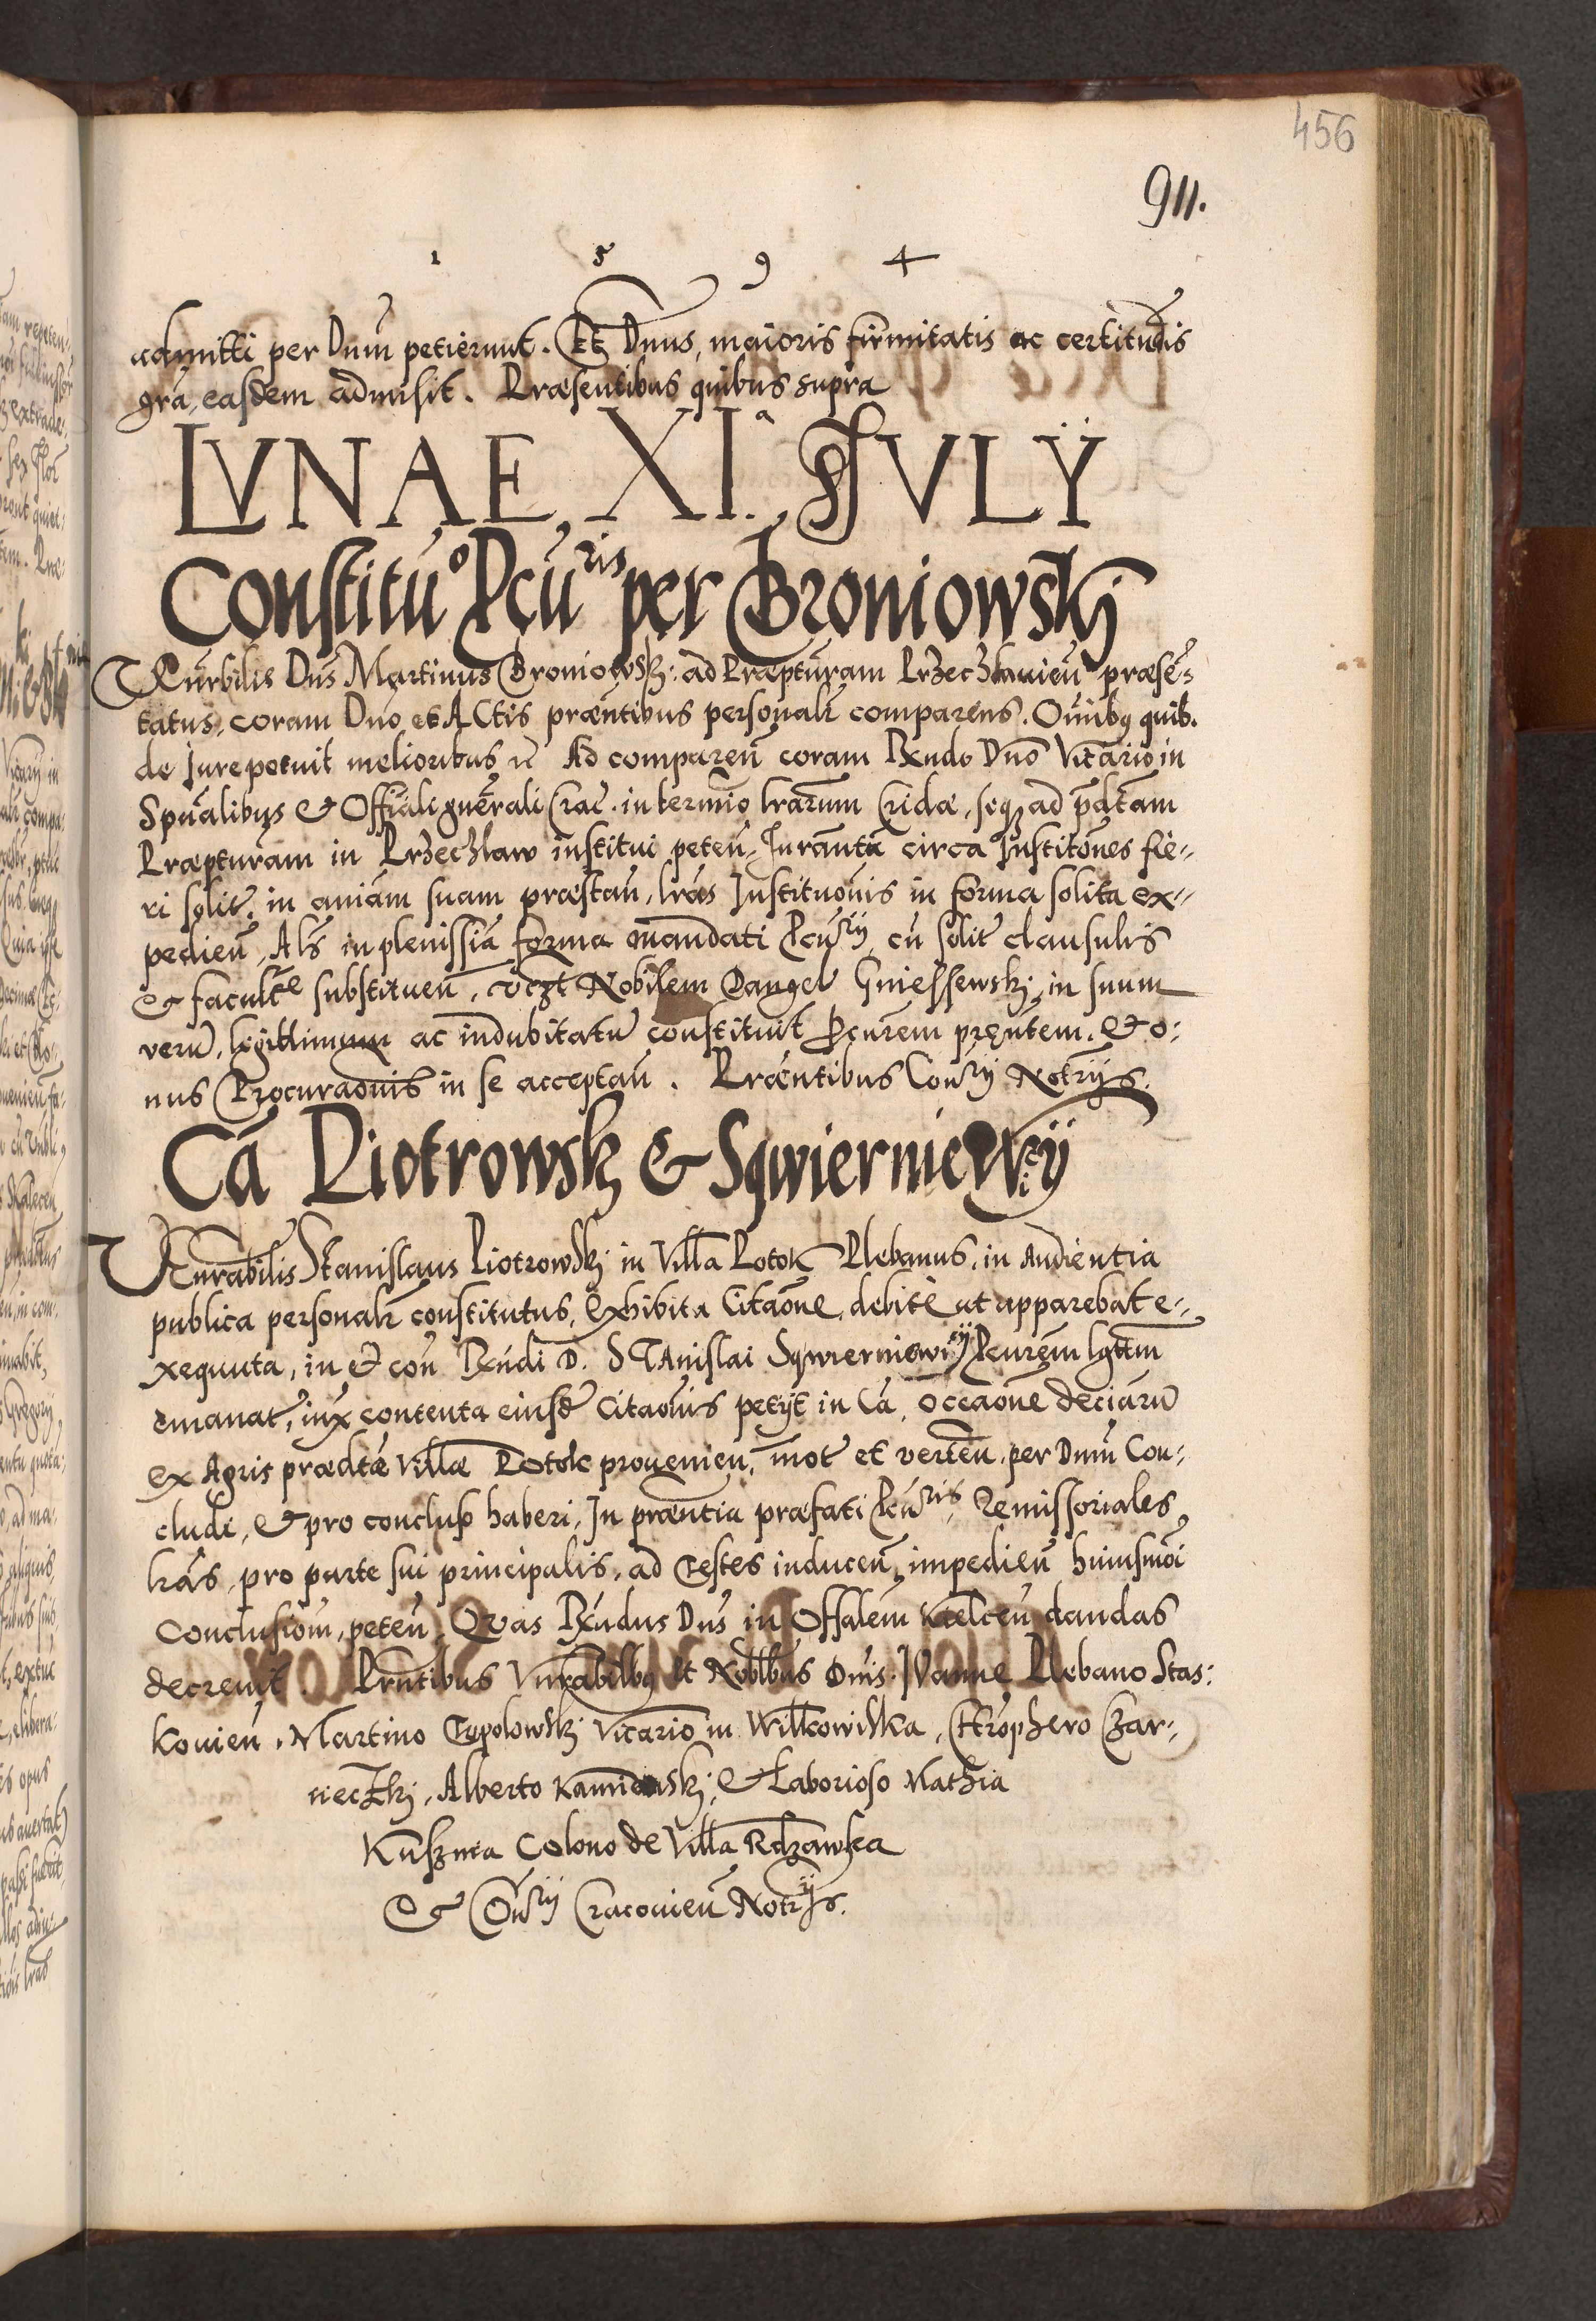 456
911.
1 5 9 4
admitti per Dnum petierunt. Et Dnus, maioris firmitatis ac certitudis
gra, easdem admisit. Præsentibus quibus supra
LVNAE, XIª. JVLY
Constitu° Pcu^ris per Broniowskj
Vnrbilis Dns Martinus Broniowskj: ad Præpturam Przeczlauien præsē-
tatus, coram Dno et Actis præntibus personalr comparens. Omnibq quib.
de Jure potuit melioribus Ad comparen coram Rxndo Dno Vicario in
Spualibus & Offiali gnerali Crac. in termio lrarum Cridæ, seq ad pdctam
Præpturam in Przeczlaw institui peten, Juramta circa Institones fie-
ri solit, in aniam suam præstan, lras Institnonis in forma solita ex-
pedien, Als in plenissia forma mandati Pcu^rij, cu solit clausulis
& facult^e substituen, vczt Nobilem Dangel Gniessewskj, in suum
veru, legittimum ac indubitatu constituit Pcurem prentem. & o:
nus Procuraonis in se acceptan. Præntibus Con^rij Notrijs.
Ca Piotrowsk & Sqwierniewicij
Vnrabilis Stanislaus Piotrowskj in Villa Potok Plebanus, in Audientia
publica personalr constitutus, Exhibita Citaone, debite ut apparebat e-
xequuta, in et con Rxndi D. STAnislai Sqwierniewicij Pcurem lgttm
emanat, iux contenta eiusd Citaonis petijt in Ca, occaone deciaru
ex Agris prædctæ Villæ Potok prouenien, mot et verten, per Dnum Con-
cludi, & pro concluso haberi, In præntia præfati Pcu^ris, Remissoriales
lras, pro parte sui principalis, ad Testes inducen, impedien huiusmoi
Conclusiom, peten, Quas Rxndus Dns in Offalem Kielcen dandas
decreuit. Prntibus Vnrabilbq et Noblbus Dnis. IOanne Plebano Stas:
kouien, Martino Topolowskj Vicario in Wilkowiska, Chrophero Czar-
nieczkj, Alberto Kamienskj, & Laborioso Mathia
Kuszmea Colono de Villa Rdzawka
& Con^rij Cracouien Notrijs.